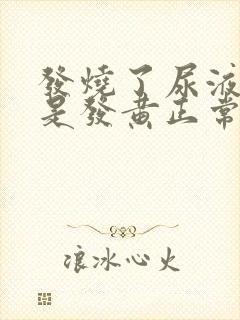 發燒了尿液
是發黃正常
浪冰心火